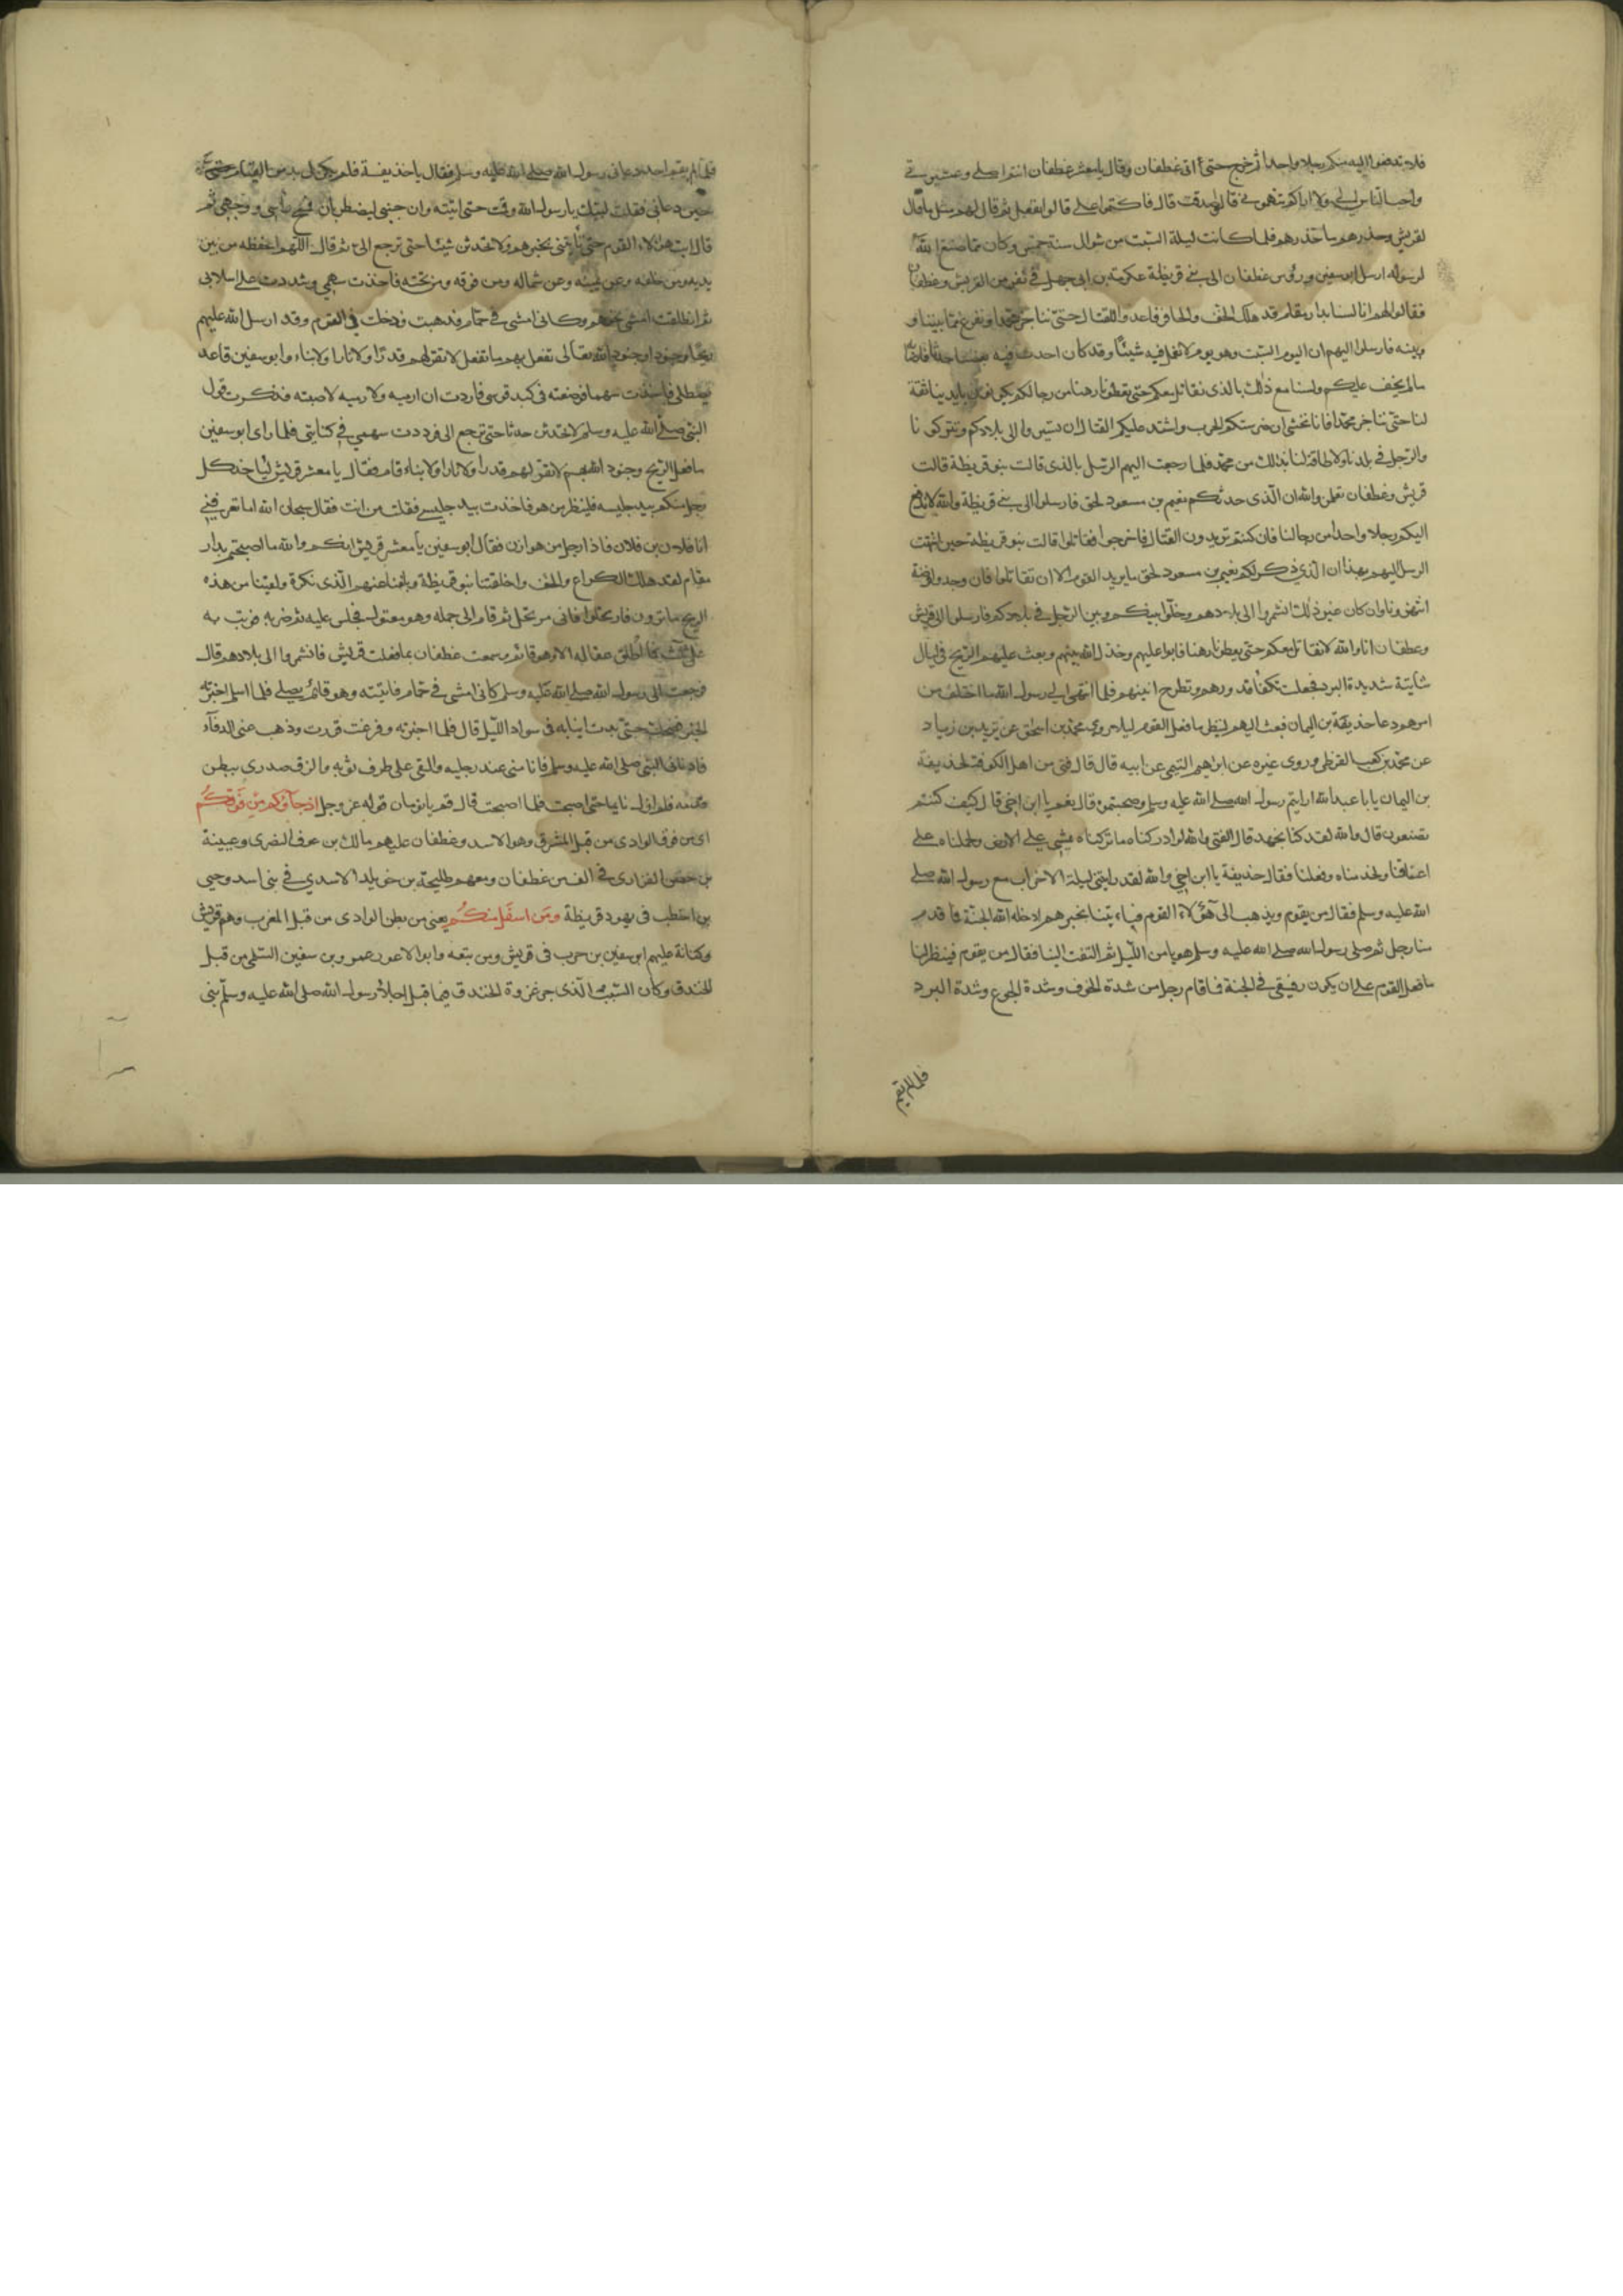 فلا تدفعوا اليه منكم رجلا واحدا ثم خرج حتى اتى غطفان وقال يا معشر غطفان انتم اصلي وعشيرتي
واحب الناس الي ولا اراكم تتهموني قالوا صدقت قال فاكتموا علي قالوا نفعل ثم قال لهم مثل ما قال
لقريش وحذرهم ما حذرهم فلما كانت ليلة السبت من شوال سنة خمس وكان مما صنع الله
لرسوله ارسل ابو سفين ورؤس غطفان الى بني قريظة عكرمة بن ابي جهل في نفر من القريش وغطفان
فقالوا لهم انا لسنا بدار مقام قد هلك الخف والحافر فاعدوا للقتال حتى نناجز محمدا ونفرغ مما بيننا و
بينه فارسلوا اليهم ان اليوم السبت وهو يوم لا نعمل فيه شيئا وقد كان احدث فيه بعضنا حدثا فاصابه
ما لم يخف عليكم ولسنا مع ذلك بالذي نقاتل معكم حتى تعطونا رهنا من رجالكم يكونون بايدينا ثقة
لنا حتى نناجز محمدا فانا نخشى ان ضرستكم الحرب واشتد عليكم القتال ان تسيروا الى بلادكم وتتركونا
والرجل في بلدنا ولا طاقة لنا بذلك من محمد فلما رجعت اليهم الرسل بالذي قالت بنو قريظة قالت
قريش وغطفان تعلمن والله ان الذي حدثكم نعيم بن مسعود لحق فارسلوا الى بني قريظة والله لا ندفع
اليكم رجلا واحدا من رجالنا فان كنتم تريدون القتال فاخرجوا فقاتلوا قالت بنو قريظة حين انتهت
الرسل اليهم بهذا ان الذي ذكر لكم نعيم بن مسعود لحق ما يريد القوم الا ان تقاتلوا فان وجدوا فرصة
انتهزوها وان كان غير ذلك انشمروا الى بلادهم وخلوا بينكم وبين الرجل في بلادكم فارسلوا الى قريش
وغطفان انا والله لا نقاتل معكم حتى تعطونا رهنا فابوا عليهم وخذل الله بينهم وبعث عليهم الريح في ليال
شاتية شديدة البرد فجعلت تكفأ قدورهم وتطرح انيتهم فلما انتهى الى رسول الله ما اختلف من
امرهم دعا حذيفة بن اليمان فبعثه اليهم لينظر ما فعل القوم ليلا روى محمد بن اسحق عن يزيد بن زياد
عن محمد بن كعب القرظي وروى غيره عن ابراهيم التيمي عن ابيه قال قال فتى من اهل الكوفة لحذيفة
بن اليمان يا با عبد الله ارايتم رسول الله صلى الله عليه وسلم وصحبتموه قال نعم يا ابن اخي قال كيف كنتم
تصنعون قال والله لقد كنا نجهد قال الفتى والله لو ادركناه ما تركناه يمشي على الارض ولحملناه على
اعناقنا ولخدمناه وفعلنا فقال حذيفة يا ابن اخي والله لقد رايتني ليلة الاحزاب مع رسول الله صلى
الله عليه وسلم فقال من يقوم ويذهب الى هؤلاء القوم فياتينا بخبرهم ادخله الله الجنة فما قام
منا رجل ثم صلى رسول الله صلى الله عليه وسلم هويا من الليل ثم التفت الينا فقال من يقوم فينظر لنا
ما فعل القوم على ان يكون رفيقي في الجنة فما قام رجل من شدة الخوف وشدة الجوع وشدة البرد
فلما لم يقم
فلما لم يقم احد دعاني رسول الله صلى الله عليه وسلم فقال يا حذيفة فلم يكن لي بد من القيام
حين دعاني فقلت لبيك يا رسول الله وقمت حتى اتيته وان جنبي ليضطربان فمسح راسي ووجهي ثم
قال ائت هؤلاء القوم حتى تاتيني بخبرهم ولا تحدثن شيئا حتى ترجع الي ثم قال اللهم احفظه من بين
يديه ومن خلفه وعن يمينه وعن شماله ومن فوقه ومن تحته فاخذت سهمي وشددت علي اسلابي
ثم انطلقت امشي نحوهم وكاني امشي في حمام فذهبت ودخلت في القوم وقد ارسل الله عليهم
ريحا وجنودا وجنود الله تعالى تفعل بهم ما تفعل لا تقر لهم قدرا ولا نارا ولا بناء وابو سفين قاعد
يصطلي فاخذت سهما فوضعته في كبد قوسي فاردت ان ارميه ولو رميته لاصبته فذكرت قول
النبي صلى الله عليه وسلم لا تحدثن حدثا حتى ترجع الي فرددت سهمي في كنانتي فلما راى ابو سفين
ما فعل الريح وجنود الله بهم لا تقر لهم قدرا ولا نارا ولا بناء قام فقال يا معشر قريش ليأخذ كل
رجل منكم بيد جليسه فلينظر من هو فاخذت بيد جليسي فقلت من انت فقال سبحان الله اما تعرفني
انا فلان بن فلان فاذا رجل من هوازن فقال ابو سفين يا معشر قريش انكم والله ما اصبحتم بدار
مقام لقد هلك الكراع والخف واخلفتنا بنو قريظة وبلغنا عنهم الذي نكره ولقينا من هذه
الريح ما ترون فارتحلوا فاني مرتحل ثم قام الى جمله وهو معقول فجلس عليه ثم ضربه فوثب به
على ثلث فما اطلق عقاله الا وهو قائم وسمعت غطفان بما فعلت قريش فانشمروا الى بلادهم قال
فرجعت الى رسول الله صلى الله عليه وسلم كاني امشي في حمام فاتيته وهو قائم يصلي فلما سلم اخبرته
الخبر فضحك حتى بدت انيابه في سواد الليل قال فلما اخبرته وفرغت قررت وذهب عني الدفآء
فادناني النبي صلى الله عليه وسلم فانامني عند رجليه والقى علي طرف ثوبه والزق صدري ببطن
قدميه فلم ازل نايما حتى اصبحت فلما اصبحت قال قم يا نومان قوله عز وجل اذ جآؤكم من فوقكم
اي من فوق الوادي من قبل المشرق وهو الاسد وغطفان عليهم مالك بن عوف النضري وعيينة
بن حصن الفزاري في الف من غطفان ومعهم طليحة بن خويلد الاسدي في بني اسد وحيي
بن اخطب في يهود قريظة ومن اسفل منكم يعني من بطن الوادي من قبل المغرب وهم قريش
وكنانة عليهم ابو سفين بن حرب في قريش ومن تبعه وابو الاعور عمرو بن سفين السلمي من قبل
الخندق وكان السبب الذي جر غزوة الخندق فيما قيل اجلاء رسول الله صلى الله عليه وسلم بني